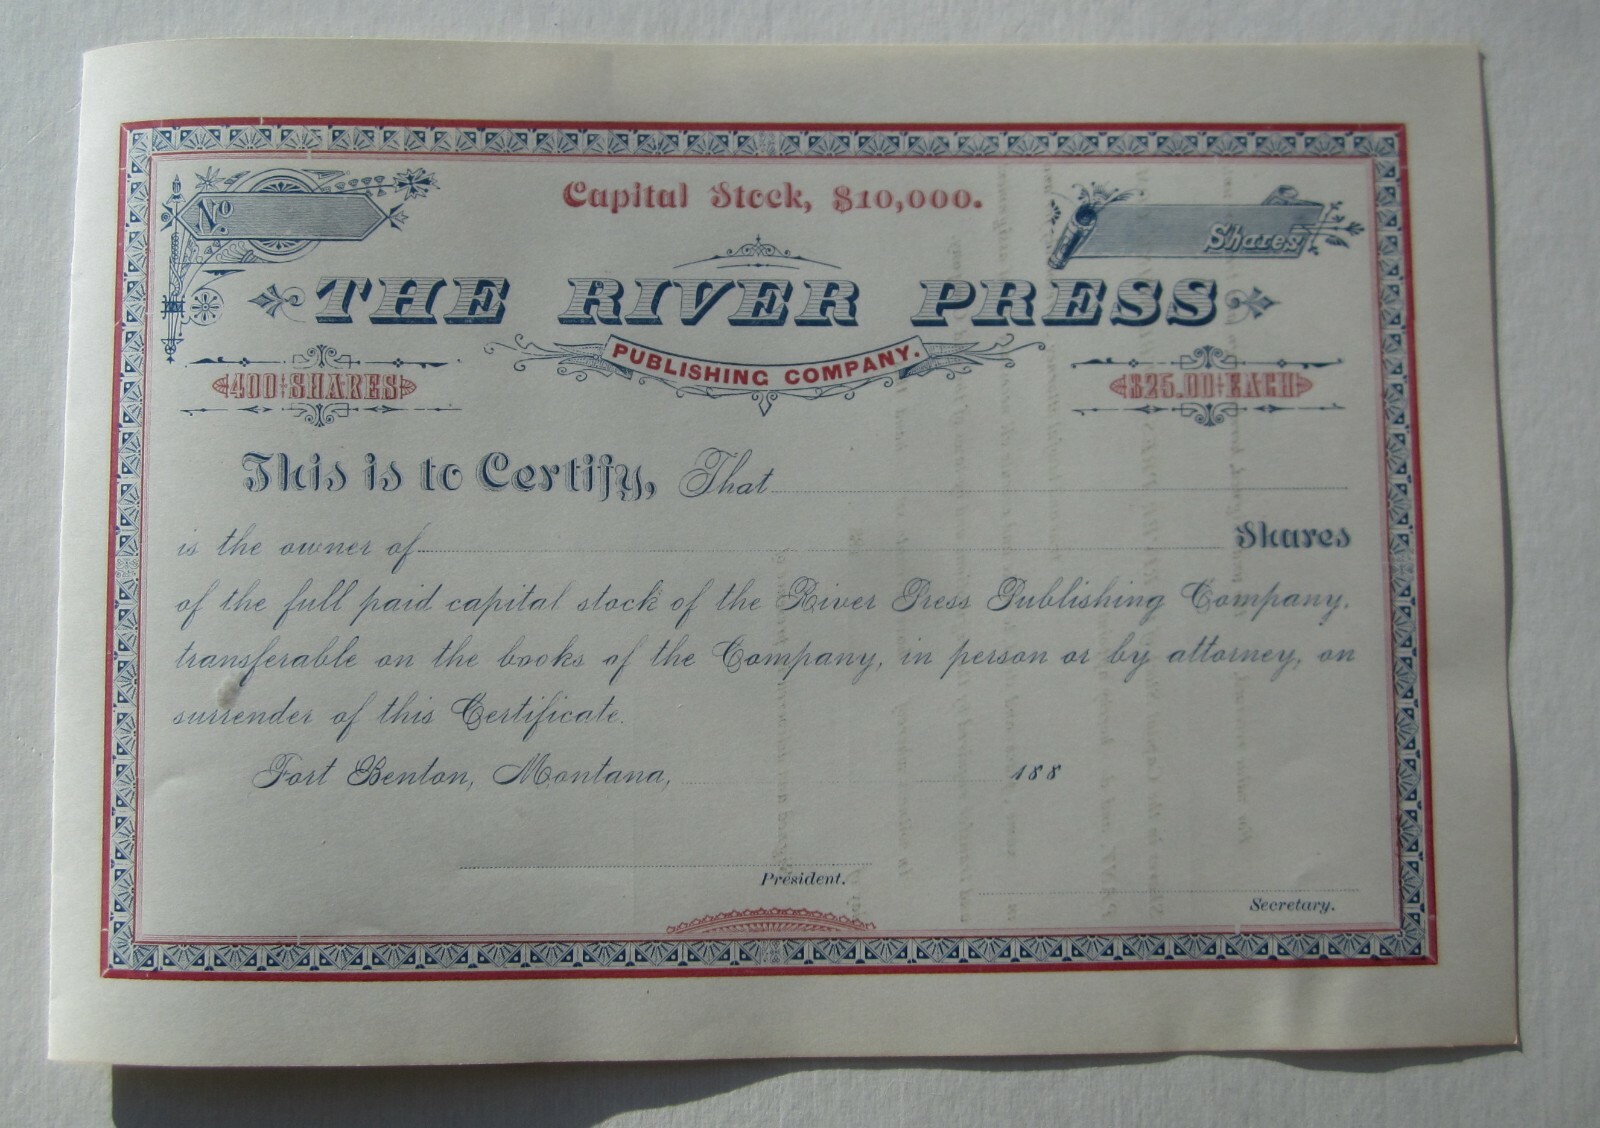 No.
Capital Stock, $10,000.
Shares
THE RIVER PRESS
PUBLISHING COMPANY.
400 SHARES
$25.00 EACH
This is to Certify, That
is the owner of Shares
of the full paid capital stock of the River Press Publishing Company,
transferable on the books of the Company, in person or by attorney, on
surrender of this Certificate.
Fort Benton, Montana, 188
President.
Secretary.